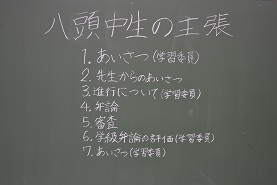 八頭中生の主張
1. あいさつ(学習委員)
2. 先生からのあいさつ
3. 進行について(学習委員)
4. 弁論
5. 審査
6. 学級弁論の評価(学習委員)
7. あいさつ(学習委員)